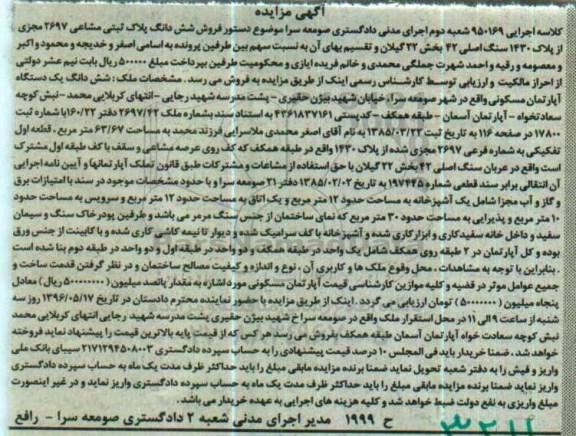 آگهی مزایده
کلاسه اجرایی ۹۵۰۱۶۹ شعبه دوم اجرای مدنی دادگستری صومعه سرا موضوع دستور فروش شش دانگ پلاک ثبتی مشاعی ۲۶۹۷ مجزی
از پلاک ۱۴۳۰ سنگ اصلی ۴۲ بخش ۲۲ گیلان و تقسیم بهای آن به نسبت سهم بین طرفین پرونده به اسامی اصغر و خدیجه و محمود و اکبر
و معصومه و رقیه و احمد شهرت جملگی محمدی و خانم فریده ایازی و محکومیت طرفین بپرداخت مبلغ ۵۰۰۰۰۰ ریال بابت نیم عشر دولتی
از احراز مالکیت و ارزیابی توسط کارشناس رسمی اینک از طریق مزایده به فروش می رسد. مشخصات ملک: شش دانگ یک دستگاه
آپارتمان مسکونی واقع در شهر صومعه سرا، خیابان شهید بیژن حقیری - پشت مدرسه شهید رجایی - انتهای کربلایی محمد - نبش کوچه
سعادتخواه - آپارتمان آسمان - طبقه همکف - کدپستی ۴۳۶۱۸۳۷۱۶۱ به استناد سند بشماره ملک ۲۶۹۷/۴۲ دفتر ۱۶۰/۲۲ با شماره ثبت
۱۷۸۰۰ در صفحه ۱۱۶ به تاریخ ثبت ۱۳۸۵/۰۳/۲۲ به نام آقای اصغر محمدی ملاسرایی فرزند محمد به مساحت ۶۳/۶۷ متر مربع، قطعه اول
تفکیکی به شماره فرعی ۲۶۹۷ مجزی شده از پلاک ۱۴۳۰ واقع در طبقه همکف که کف روی عرصه مشاعی و سقف با کف طبقه اول مشترک
است واقع در عربان سنگ اصلی ۴۲ بخش ۲۲ گیلان با حق استفاده از مشاعات و مشترکات طبق قانون تملک آپارتمانها و آیین نامه اجرایی
آن انتقالی برابر سند قطعی شماره ۱۹۷۴۴۵ به تاریخ ۱۳۸۵/۰۲/۰۲ دفتر ۲۱ صومعه سرا و با حدود مشخصات موجود در سند با امتیازات برق
و گاز و آب مجزا شامل یک آشپزخانه به مساحت حدود ۱۲ متر مربع و یک اتاق به مساحت حدود ۱۲ متر مربع و سرویس به مساحت حدود
۱۰ متر مربع و پذیرایی به مساحت حدود ۳۰ متر مربع که نمای ساختمان از جنس سنگ مرمر می باشد و طرفین پودر خاک سنگ و سیمان
سفید و داخل خانه سفیدکاری و ابزار کاری شده و آشپزخانه با کف سرامیک شده و دیوار تا نیمه کاشی کاری شده و با کابینت از جنس ورق
بوده و کل آپارتمان در ۲ طبقه روی همکف شامل یک واحد در طبقه همکف و دو واحد در طبقه اول و دو واحد در طبقه دوم بنا شده است
. بنابراین با توجه به مشاهدات، محل وقوع ملک ها و کاربری آن، نوع و اندازه و کیفیت مصالح ساختمان و در نظر گرفتن قدمت ساخت و
جمیع عوامل موثر در قضیه و کلیه موازین کارشناسی قیمت آپارتمان مسکونی مورد اشاره به مقدار پانصد میلیون (۵۰۰۰۰۰۰۰۰ ریال) معادل
پنجاه میلیون (۵۰۰۰۰۰۰۰) تومان ارزیابی می گردد. اینک از طریق مزایده با حضور نماینده محترم دادستان در تاریخ ۱۳۹۶/۰۵/۱۷ روز سه
شنبه از ساعت ۹ الی ۱۱ در محل استقرار ملک واقع در صومعه سرا خ شهید بیژن حقیری پشت مدرسه شهید رجایی انتهای کربلایی محمد
نبش کوچه سعادت خواه آپارتمان آسمان طبقه همکف بفروش می رسد هر کس که از قیمت پایه بالاترین قیمت را پیشنهاد نماید فروخته
خواهد شد، ضمنا خریدار باید فی المجلس ۱۰ درصد قیمت پیشنهادی را به حساب سپرده دادگستری ۲۱۷۱۲۹۴۵۰۸۰۰۳ سیبای بانک ملی
واریز و فیش را به دفتر شعبه تحویل نماید ضمنا برنده مزایده مابقی مبلغ را باید حداکثر ظرف مدت یک ماه به حساب سپرده دادگستری
واریز نماید ضمنا برنده مزایده مابقی مبلغ را باید حداکثر ظرف مدت یک ماه به حساب سپرده دادگستری واریز نماید و در غیر اینصورت
مبلغ واریزی به نفع دولت ضبط خواهد شد و کلیه هزینه های اجرایی به عهده خریدار می باشد.
ح ۱۹۹۹ مدیر اجرای مدنی شعبه ۲ دادگستری صومعه سرا - رافع